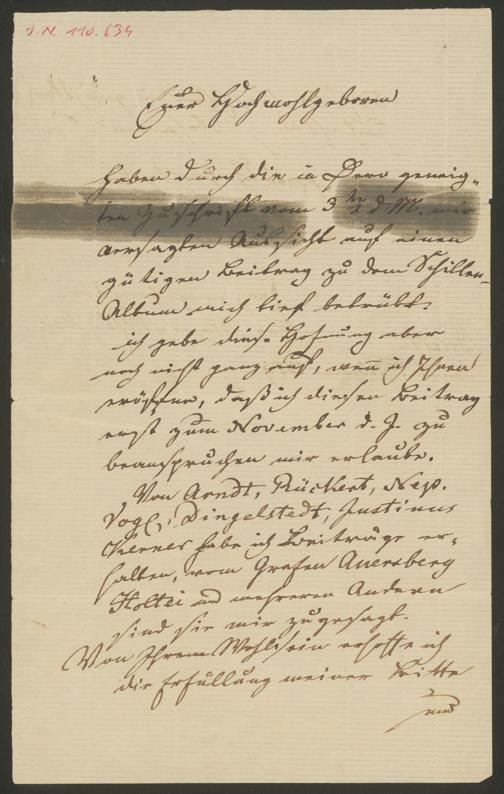 J. N. 110.634
Euer Hochwohlgeboren
haben durch die in Dero geneig-
ten Zuschrift vom 3 d. M. mir
versagten Aussicht auf einen
gütigen Beitrag zu dem Schiller-
Album mich tief betrübt.
ich gebe diese Hofnung aber
noch nicht ganz auf, wenn ich Ihnen
eröffne, daß ich diesen Beitrag
erst zum November d. J. zu
beanspruchen mir erlaube.
Von Arndt, Rückert, Nep.
Vogl, Dingelstedt, Justinus
Kerner habe ich Beiträge er-
halten, vom Grafen Auersberg
Holtei und mehreren Andern
sind sie mir zugesagt.
Von Ihrem Wohlsein erhoffe ich
die Erfüllung meiner Bitte
und